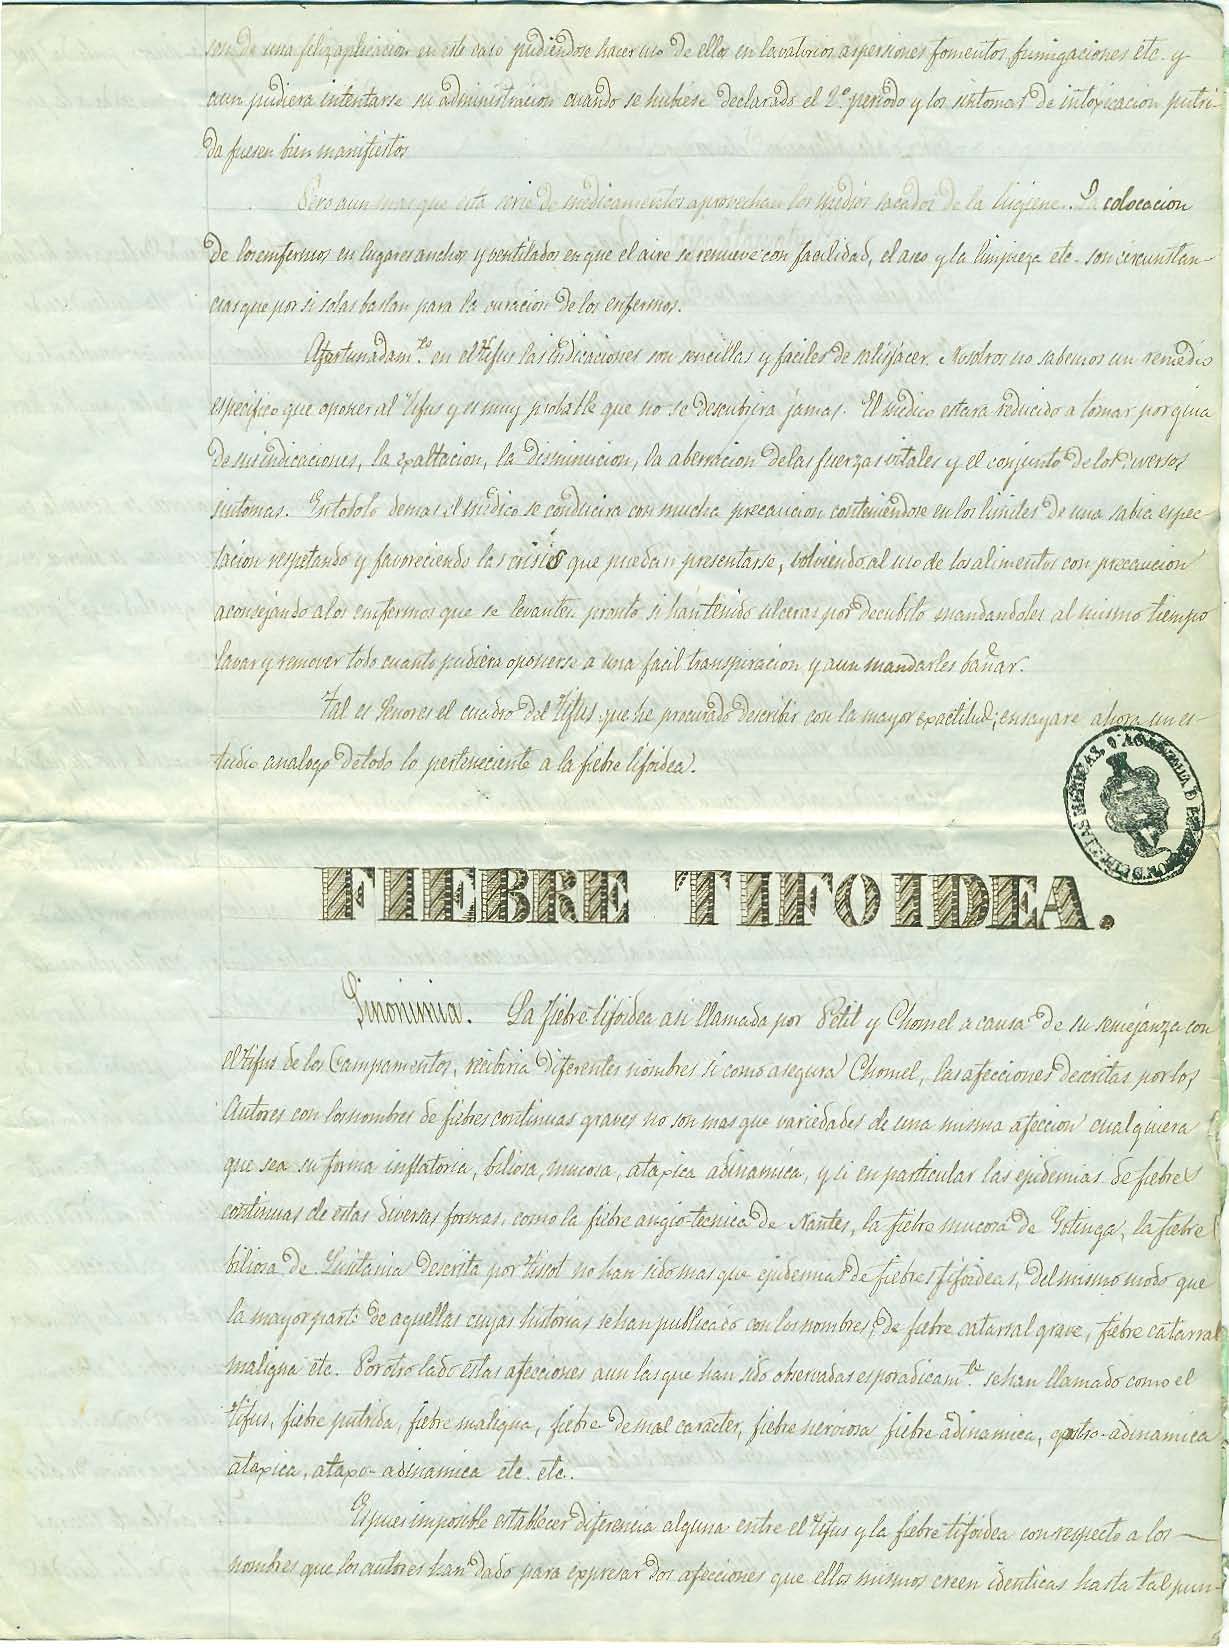 son de una feliz aplicacion en este caso pudiendose hacer uso de ellos en lavatorios aspersiones fomentos, fumigaciones etc. y
aun pudiera intentarse su administracion cuando se hubiese declarado el 2º periodo y los sintomas de intoxicacion putri-
da fuesen bien manifiestos
Pero aun mas que esta serie de medicamentos aprovechan los medios sacados de la higiene. La colocacion
de los enfermos en lugares anchos y ventilados en que el aire se renueve con facilidad, el aseo y la limpieza etc. son circunstan-
cias que por si solas bastan para la curacion de los enfermos.
Afortunadamte. en el tifus las indicaciones son sencillas y faciles de satisfacer. Nosotros no sabemos un remedio
especifico que oponer al tifus y es muy probable que no se descubrira jamas. El medico estara reducido a tomar por guia
de sus indicaciones, la exaltacion, la disminucion, la aberracion de las fuerzas vitales y el conjunto de los diversos
sintomas. En todo lo demas el medico se conducira con mucha precaucion conteniendose en los limites de una sabia espec-
tacion respetando y favoreciendo las crisis que puedan presentarse, volviendo al uso de los alimentos con precaucion
aconsejando a los enfermos que se levanten pronto si han tenido ulceras por decubito mandandoles al mismo tiempo
lavar y remover todo cuanto pudiera oponerse a una facil transpiracion y aun mandarles bañar.
Tal es Señores el cuadro del tifus que he procurado describir con la mayor exactitud; ensayare ahora un es-
tudio analogo de todo lo perteneciente a la fiebre tifoidea.
FIEBRE TIFOIDEA.
Sinonimia. La fiebre tifoidea asi llamada por Petit y Chomel a causa de su semejanza con
el tifus de los Campamentos, recibiria diferentes nombres si como asegura Chomel, las afecciones descritas por los
Autores con los nombres de fiebres continuas graves no son mas que variedades de una misma afeccion cualquiera
que sea su forma inflatoria, biliosa, mucosa, ataxica adinamica, y si en particular las epidemias de fiebres
continuas de estas diversas formas, como la fiebre angio-tecnica de Nantes, la fiebre mucosa de Gotinga, la fiebre
biliosa de Lusitania descrita por Tissot no han sido mas que epidemias de fiebres tifoideas, del mismo modo que
la mayor parte de aquellas cuyas historias se han publicado con los nombres, de fiebre catarral grave, fiebre catarral
maligna etc. Por otro lado estas afecciones aun las que han sido observadas esporadicamte. se han llamado como el
tifus, fiebre putrida, fiebre maligna, fiebre de mal caracter, fiebre nerviosa fiebre adinamica, gastro-adinamica
ataxica, ataxo-adinamica etc. etc.
Es pues imposible establecer diferencia alguna entre el tifus y la fiebre tifoidea con respecto a los
nombres que los autores han dado para expresar dos afecciones que ellos mismos creen identicas hasta tal pun-